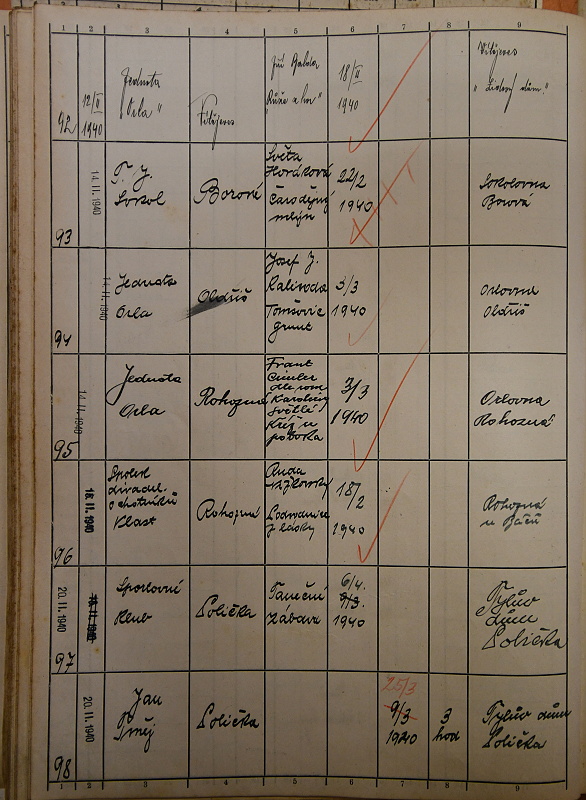 1 2 3 4 5 6 7 8 9
92
12/II
1940
Jednota
"Orla"
Jiří Balda
"Růže a
18/II
1940
"Lidový dům."
93
14.II.1940
T. J.
Sokol
Borová
Světa
Horáková
Čarodějný
mlýn
22/2
1940
Sokolovna
Borová
94
14.II.1940
Jednota
Orla
Oldřiš
Josef J.
Kalivoda
Tomšovic
grunt
3/3
1940
Orlovna
Oldřiš
95
14.II.1940
Jednota
Orla
Rohozná
Frant
Cimler
dle rom
Karoliny
Světlé
Kříž u
potoka
3/3
1940
Orlovna
Rohozná
96
16.II.1940
Spolek
divadel.
ochotníků
Vlast
Rohozná
Ruda
Podvodnice
z lásky
18/2
1940
Rohozná
u
97
20.II.1940
Sportovní
klub
Polička
Taneční
zábava
6/4.
9/3.
1940
Tylův
dům
Polička
98
20.II.1940
Jan
Polička
25/3
9/3
1940
3
hod
Tylův dům
Polička
1 2 3 4 5 6 7 8 9